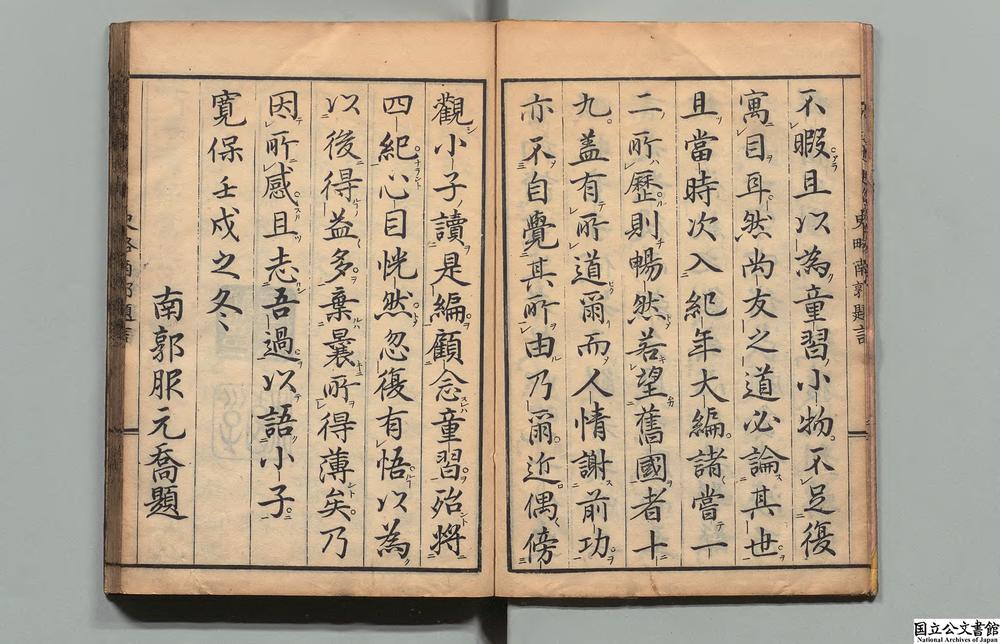 不暇且以為童習小物不足復
寓目耳然尚友之道必論其世
且當時次入紀年大編諸嘗一
二所歷則暢然若望舊國者十
九蓋有所道爾而人情謝前功
亦不自覺其所由乃爾近偶傍
觀小子讀是編顧念童習殆將
四紀心目恍然忽復有悟以為
以後得益多棄曩所得薄矣乃
因所感且志吾過以語小子
寬保壬戌之冬
南郭服元喬題
国立公文書館
National Archives of Japan